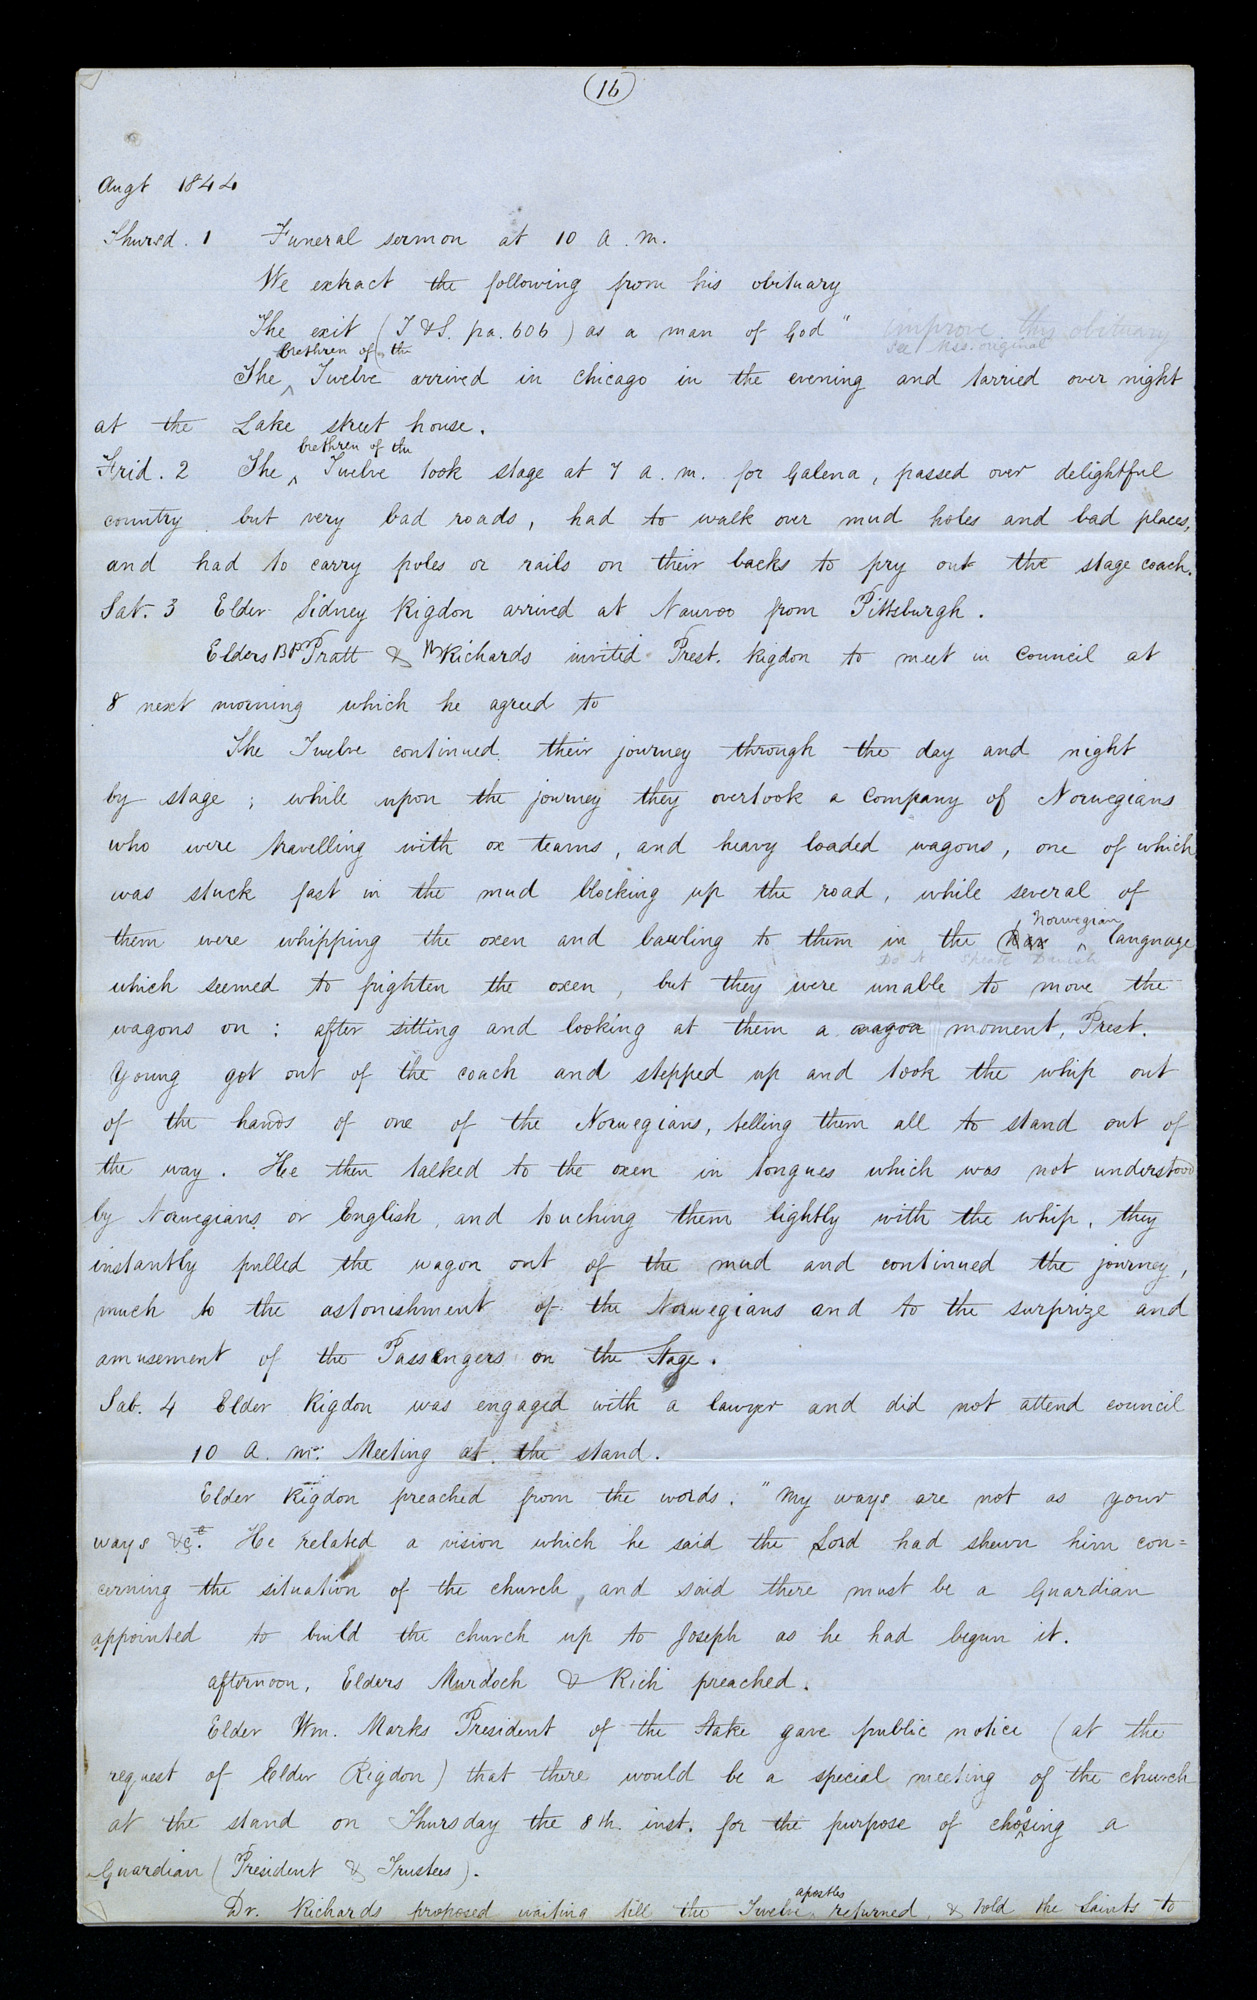 (16)
Augt 1844
Thursd. 1 Funeral sermon at 10 a.m.
We extract the following from his obituary
The exit (T & S. pa. 606) as a man of God" improve this obituary
see Mss. original
brethren of the
The ^ Twelve arrived in Chicago in the evening and tarried over night
at the Lake street house.
brethren of the
Frid. 2 The ^ Twelve took stage at 7 a.m. for Galena, passed over delightful
country but very bad roads, had to walk over mud holes and bad places,
and had to carry poles or rails on their backs to pry out the stage coach.
Sat. 3 Elder Sidney Rigdon arrived at Nauvoo from Pittsburgh.
Elders P P Pratt & W Richards invited Prest. Rigdon to meet in council at
8 next morning which he agreed to
The Twelve continued their journey through the day and night
by stage; while upon the journey they overtook a company of Norwegians
who were travelling with ox teams, and heavy loaded wagons, one of which
was stuck fast in the mud blocking up the road, while several of
Norwegian
them were whipping the oxen and bawling to them in the Dan ^ language
Do N speak Danish
which seemed to frighten the oxen, but they were unable to move the
wagons on: after sitting and looking at them a wagon moment, Prest.
Young got out of the coach and stepped up and took the whip out
of the hands of one of the Norwegians, telling them all to stand out of
the way. He then talked to the oxen in tongues which was not understood
by Norwegians or English, and touching them lightly with the whip, they
instantly pulled the wagon out of the mud and continued the journey,
much to the astonishment of the Norwegians and to the surprize and
amusement of the Passengers on the Stage.
Sab. 4 Elder Rigdon was engaged with a lawyer and did not attend council
10 a.m. Meeting at the stand.
Elder Rigdon preached from the words. "My ways are not as your
ways &c. He related a vision which he said the Lord had shewn him con=
cerning the situation of the church, and said there must be a Guardian
appointed to build the church up to Joseph as he had begun it.
afternoon, Elders Murdoch & Rich preached.
Elder Wm. Marks President of the Stake gave public notice (at the
request of Elder Rigdon) that there would be a special meeting of the church
at the stand on Thursday the 8th. inst. for the purpose of choosing a
Guardian (President & Trustees).
apostles
Dr. Richards proposed waiting till the Twelve ^ returned, & told the Saints to